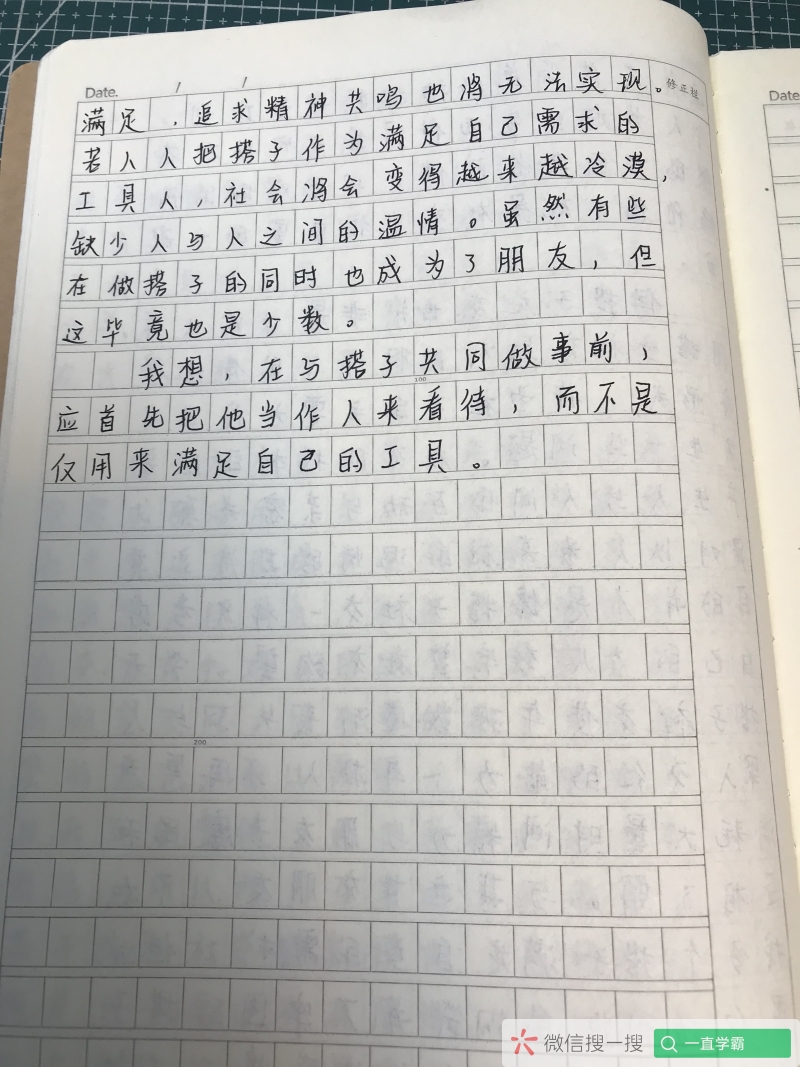 Date. / /
修正栏
Date
满足，追求精神共鸣也将无法实现。
若人人把搭子作为满足自己需求的
工具人，社会将会变得越来越冷漠，
缺少人与人之间的温情。虽然有些
在做搭子的同时也成为了朋友，但
这毕竟也是少数。
我想，在与搭子共同做事前，
100
应首先把他当作人来看待，而不是
仅用来满足自己的工具。
200
微信搜一搜
一直学霸